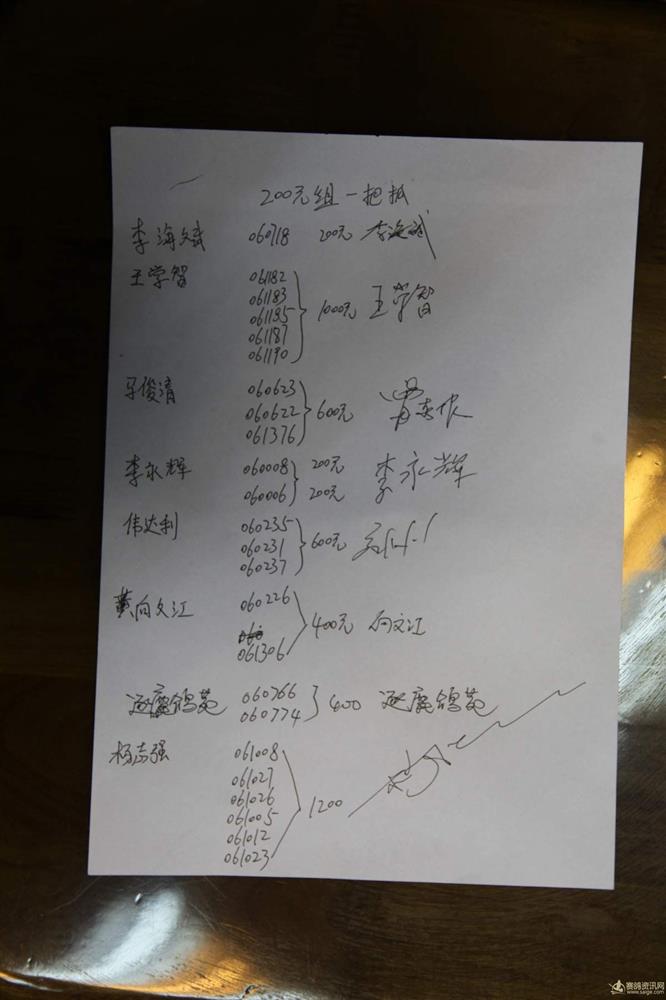 200元组一把抓
李海斌 060718 200元 李海斌
王学智 061182
061183
061185 1000元 王学智
061187
061190
马俊清 060623
060622 600元
061376
李永辉 060008 200元 李永辉
060006 200元
伟达利 060235
060231 600元
060237
黄向文江 060226
400元 向文江
061306
逐鹿鸽苑 060766 400 逐鹿鸽苑
060774
杨志强 061008
061027
061026 1200
061005
061012
061023
赛鸽资讯网
www.saige.com